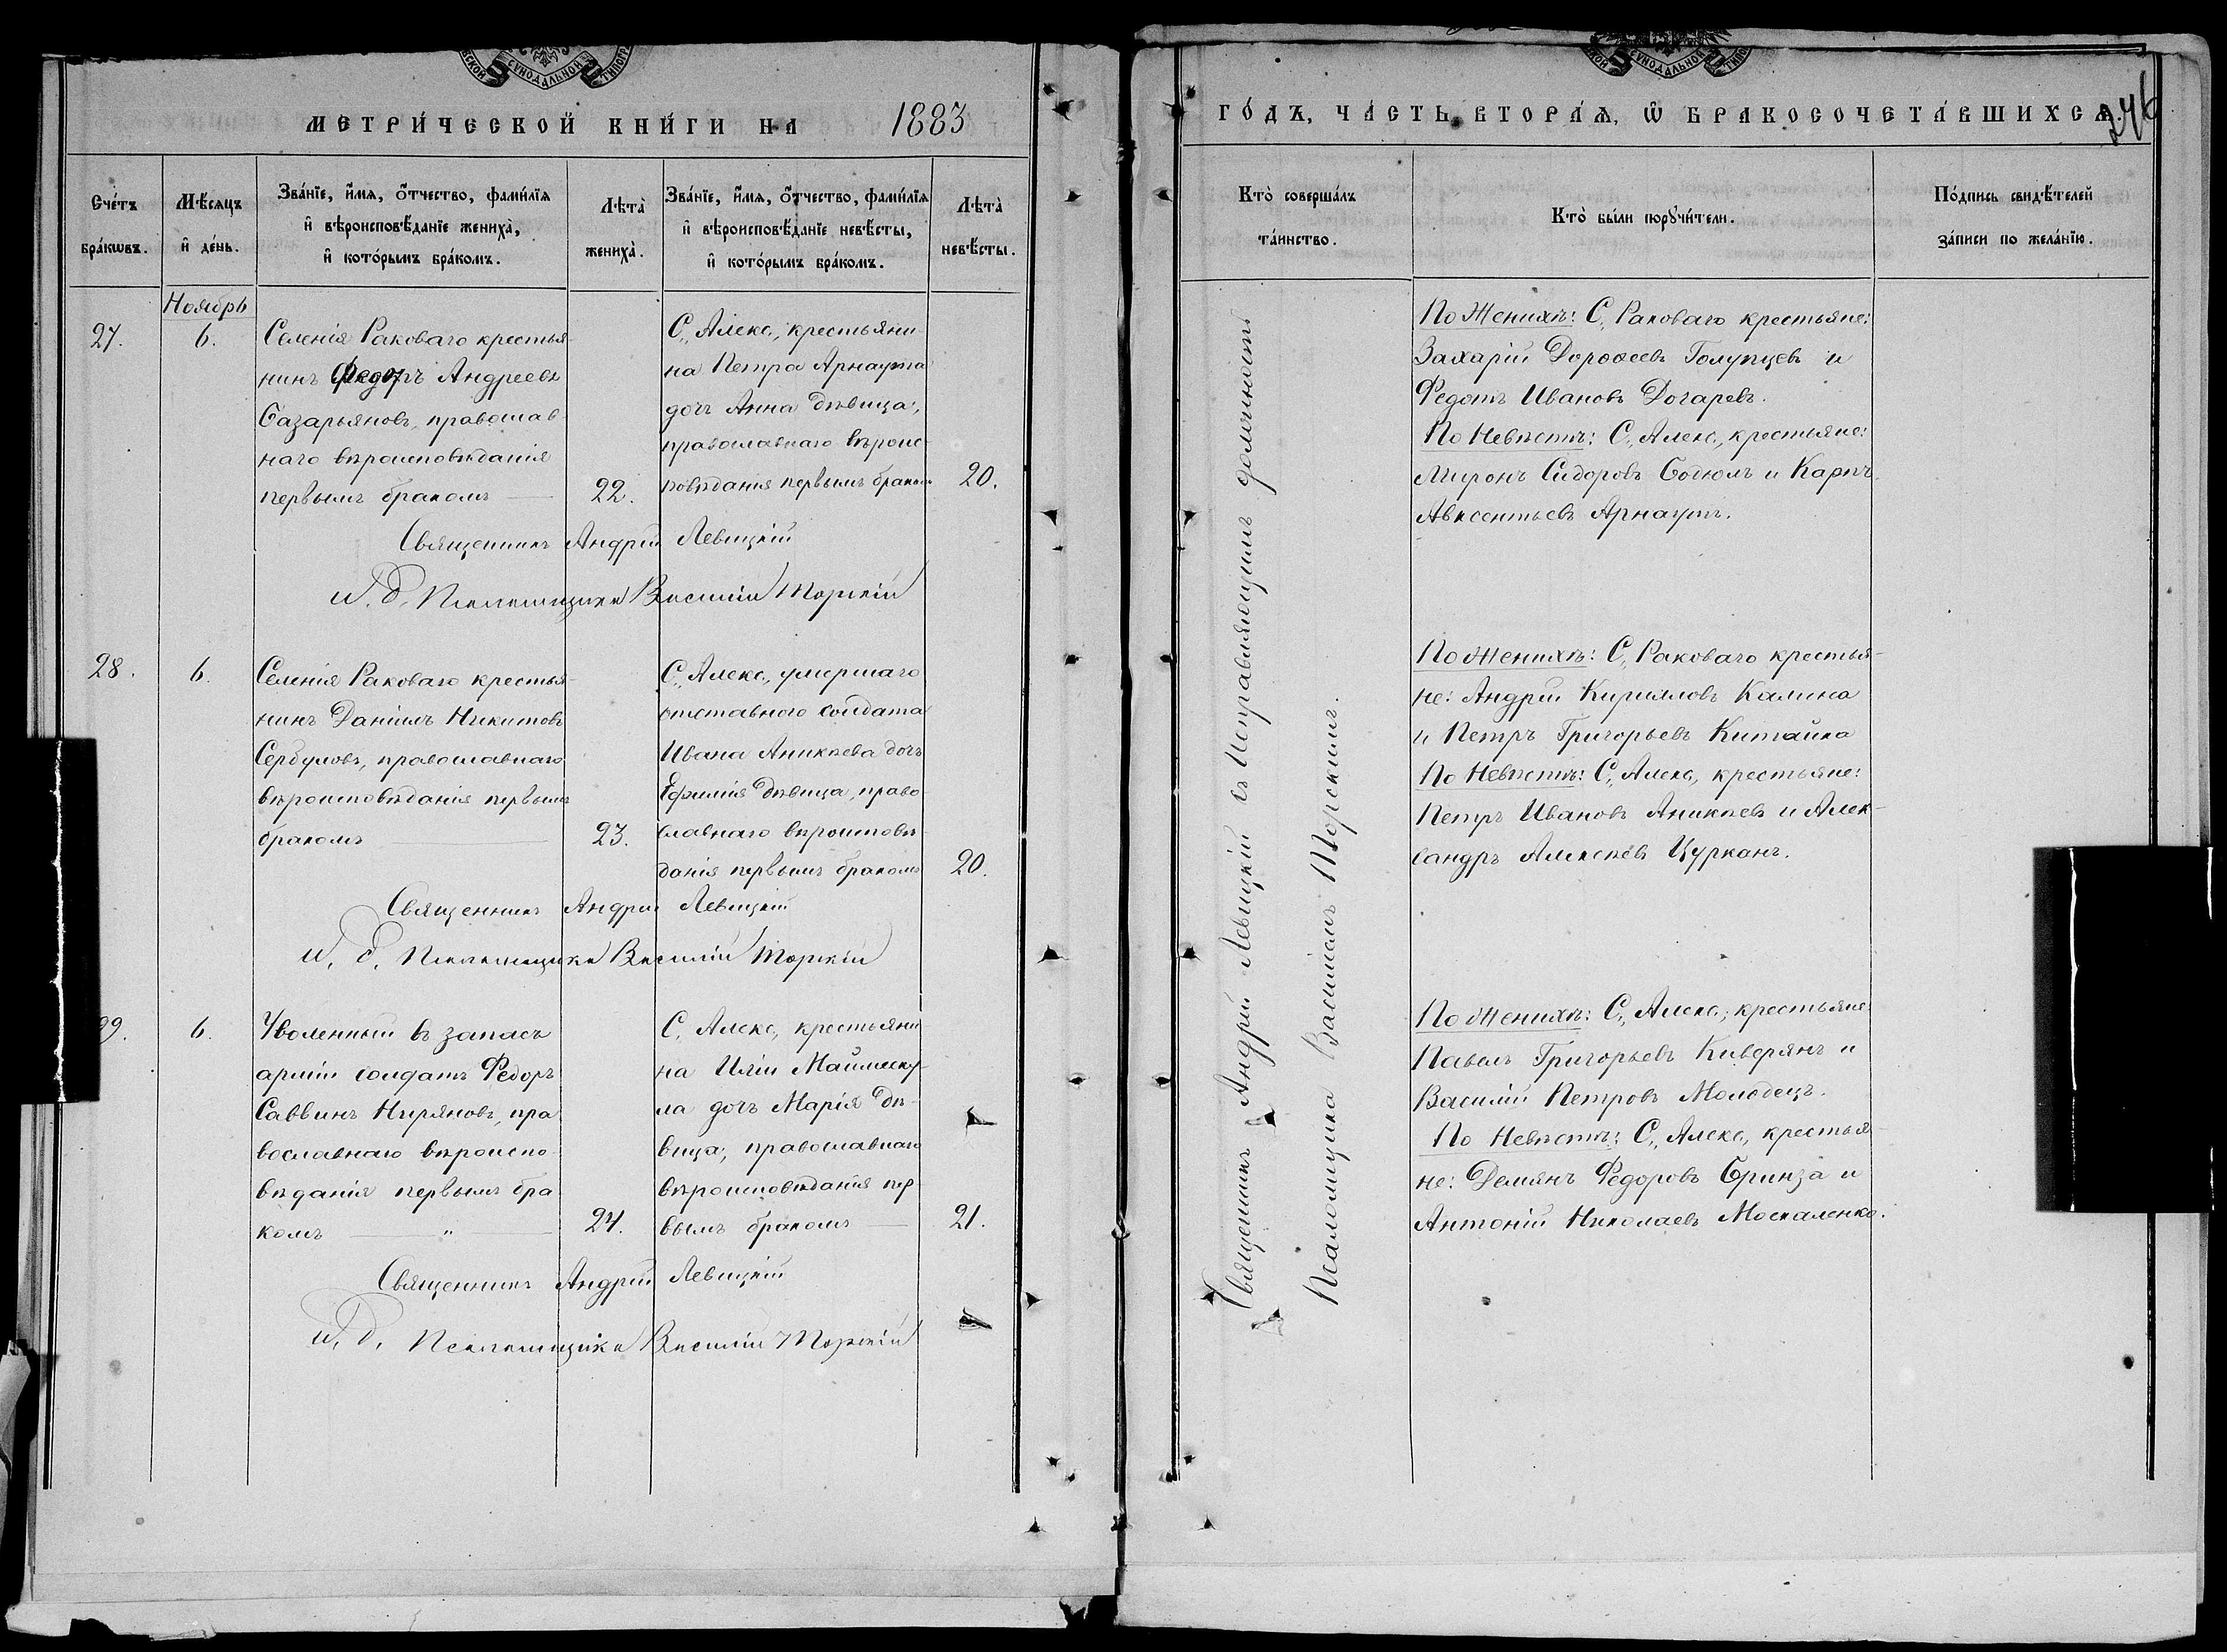 МЕТРИ́ЧЕСКОЙ КНИ́ГИ НА 1883
Сче́тъ бра́кωвъ.
Мѣ́сяцъ и҆ де́нь.
Зва́нїе, и҆́мя, ѻ҆́тчество, фами́лїя
и҆ вѣроисповѣ́данїе жениха̀,
и҆ кото́рымъ бра́комъ.
Лѣта̀ жениха̀.
Зва́нїе, и҆́мя, ѻ҆́тчество, фами́лїя
и҆ вѣроисповѣ́данїе невѣ́сты,
и҆ кото́рымъ бра́комъ.
Лѣта̀ невѣ́сты.
Ноябрь
27.
6.
Селенія Раковаго крестья-
нинъ Федоръ Андреевъ
Базарьяновъ, православ-
наго вѣроисповѣданія
первымъ бракомъ
22.
С. Алекс, крестьяни-
на Петра Арнаута
дочь Анна дѣвица,
православнаго вѣроис-
повѣданія первымъ бракомъ
20.
Священникъ Андрій Левицкій
И. д. Псаломщика Василій Торскій
28.
6.
Селенія Раковаго крестья-
нинъ Даніилъ Никитовъ
Сербуловъ, православнаго
вѣроисповѣданія первымъ
бракомъ
23.
С. Алекс, умершаго
отставного солдата
Ивана Аникѣева дочь
Ефимія дѣвица, право
славнаго вѣроисповѣ-
данія первымъ бракомъ
20.
Священникъ Андрій Левицкій
И. д. Псаломщика Василій Торскій
29.
6.
Уволенный въ запасъ
арміи солдатъ Федоръ
Саввинъ Ниряновъ, пра
вославнаго вѣроиспо-
вѣданія первымъ бра
комъ "
24.
С. Алекс, крестьяни
на Иліи Маймеску-
ла дочь Марія дѣ-
вица, православнаго
вѣроисповѣданія пер-
вымъ бракомъ
21.
Священникъ Андрій Левицкій
И. д. Псаломщика Василій Торскій
ГО́ДЪ, ЧА́СТЬ ВТОРА́Я, Ѽ БРАКОСОЧЕТА́ВШИХСЯ.
246
Кто̀ соверша́лъ
та́инство.
Кто̀ бы́ли порꙋчи́тели.
По́дпись свидѣ́телей
за́писи по жела́нїю.
Священникъ Андрій Левицкій съ Исправляющимъ должность
Псаломщика Василіемъ Торскимъ.
По Женихѣ: С. Раковаго крестьяне:
Захарій Дорофеевъ Голупцевъ и
Федотъ Ивановъ Догаревъ.
По Невѣстѣ: С. Алекс, крестьяне:
Миронъ Сидоровъ Богюлъ и Карпъ
Авксентьевъ Арнаутъ.
По Женихѣ: С. Раковаго крестья-
не: Андрій Кирилловъ Калина
и Петръ Григорьевъ Китайка
По Невѣстѣ: С. Алекс, крестьяне:
Петръ Ивановъ Аникѣевъ и Алек-
сандръ Алексѣевъ Цурканъ.
По Женихѣ: С. Алекс, крестьяне:
Павелъ Григорьевъ Киверянъ и
Василій Петровъ Молодецъ.
По Невѣстѣ: С. Алекс, крестья-
не: Демянъ Федоровъ Бринза и
Антоній Николаевъ Москаленко.